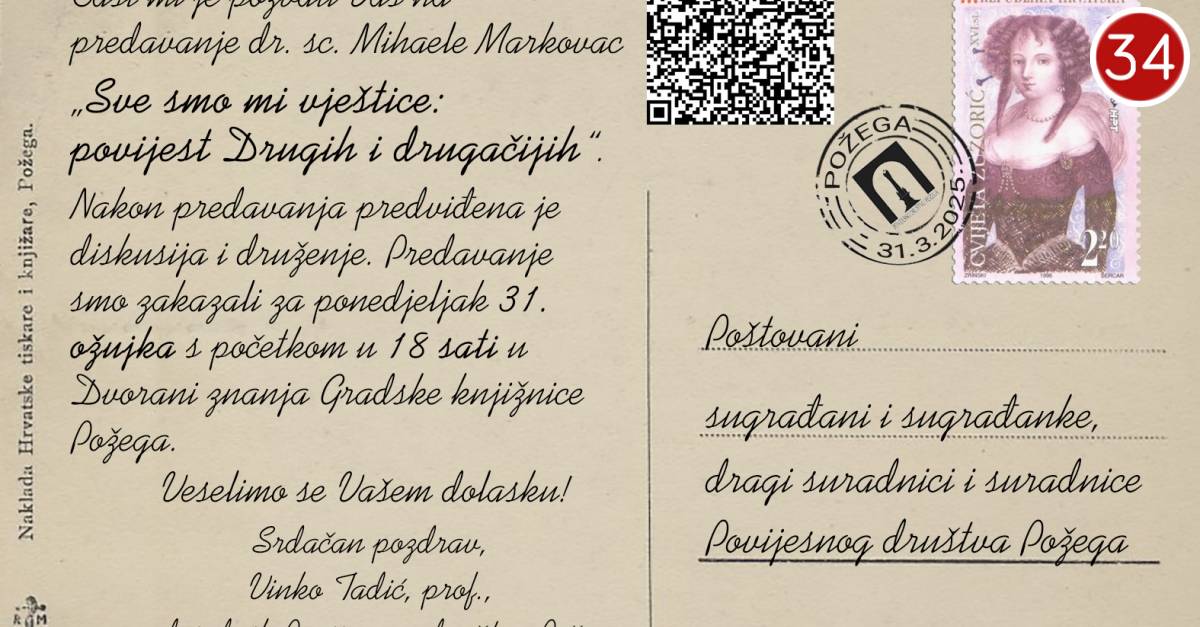 Čast mi je pozvati Vas na
predavanje dr. sc. Mihaele Markovac
„Sve smo mi vještice:
povijest Drugih i drugačijih“.
Nakon predavanja predviđena je
diskusija i druženje. Predavanje
smo zakazali za ponedjeljak 31.
ožujka s početkom u 18 sati u
Dvorani znanja Gradske knjižnice
Požega.
Veselimo se Vašem dolasku!
Srdačan pozdrav,
Vinko Tadić, prof.,
Naklada Hrvatske tiskare i knjižare, Požega.
R M
REPUBLIKA HRVATSKA
XVI. ST.
CVIJETA ZUZORIĆ
HPT
2,20
ZRINSKI 1996 ŠERCAR
34
POŽEGA
31.3.2025.
Poštovani
sugrađani i sugrađanke,
dragi suradnici i suradnice
Povijesnog društva Požega